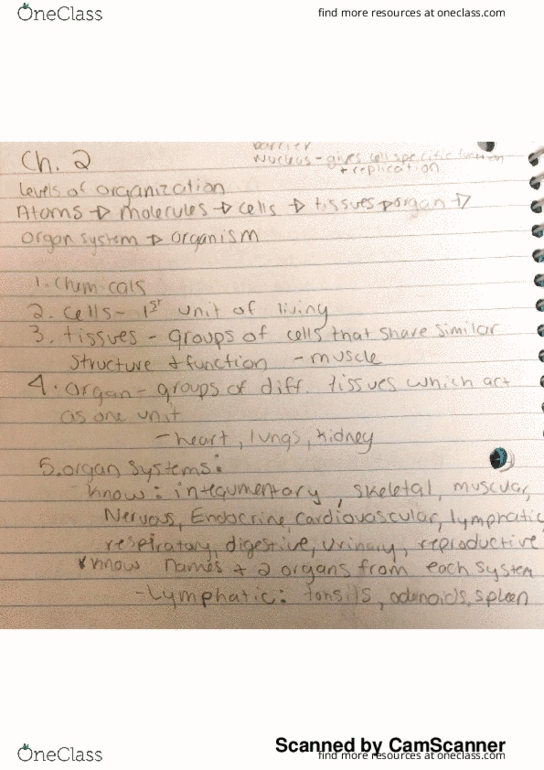 OneClass
find more resources at oneclass.com
barrier
Nucleus - gives cell specific function
+ replication
Ch. 2
Levels of organization
Atoms → molecules → cells → tissues → organ →
organ system → organism
1. Chemicals
2. Cells - 1st unit of living
3. tissues - groups of cells that share similar
structure + function - muscle
4. organ - groups of diff. tissues which act
as one unit
- heart, lungs, kidney
5. organ systems:
know: integumentary, skeletal, muscular,
Nervous, Endocrine, cardiovascular, lymphatic
respiratory, digestive, urinary, reproductive
*know names + 2 organs from each system
- Lymphatic: tonsils, adenoids, spleen
Scanned by CamScanner
OneClass
find more resources at oneclass.com